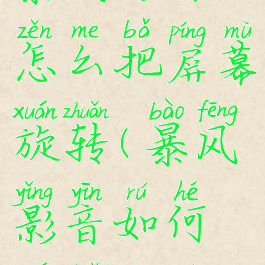 zěn me bǎ píng mù
怎么把屏幕
xuán zhuǎn bào fēng
旋转(暴风
yǐng yīn rú hé
影音如何